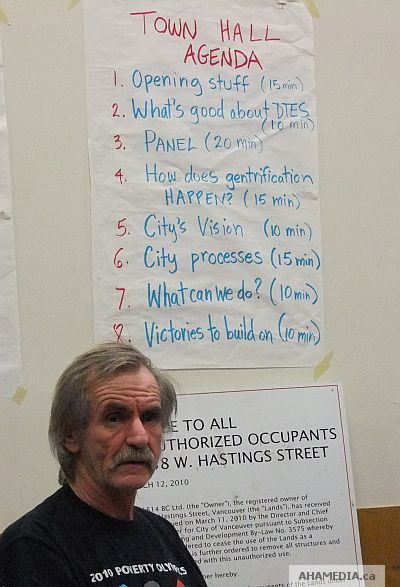 TOWN HALL
AGENDA
1. Opening stuff (15 min)
2. What's good about DTES
(10 min)
3. PANEL (20 min)
4. How does gentrification
HAPPEN? (15 min)
5. City's Vision (10 min)
6. City processes (15 min)
7. What can we do? (10 min)
8. Victories to build on (10 min)
E TO ALL
THORIZED OCCUPANTS
8 W. HASTINGS STREET
CH 12, 2010
614 BC Ltd. (the "Owner"), the registered owner of
Hastings Street, Vancouver (the "Lands"), has received
ued on March 11, 2010 by the Director and Chief
er for City of Vancouver pursuant to Subsection
ing and Development By-Law No. 3575 whereby
ordered to cease the use of the Lands as a
s further ordered to remove all structures and
ated with this unauthorized use.
er hereby:
2010 POVERTY OLYMPICS
AHAMEDIA.ca